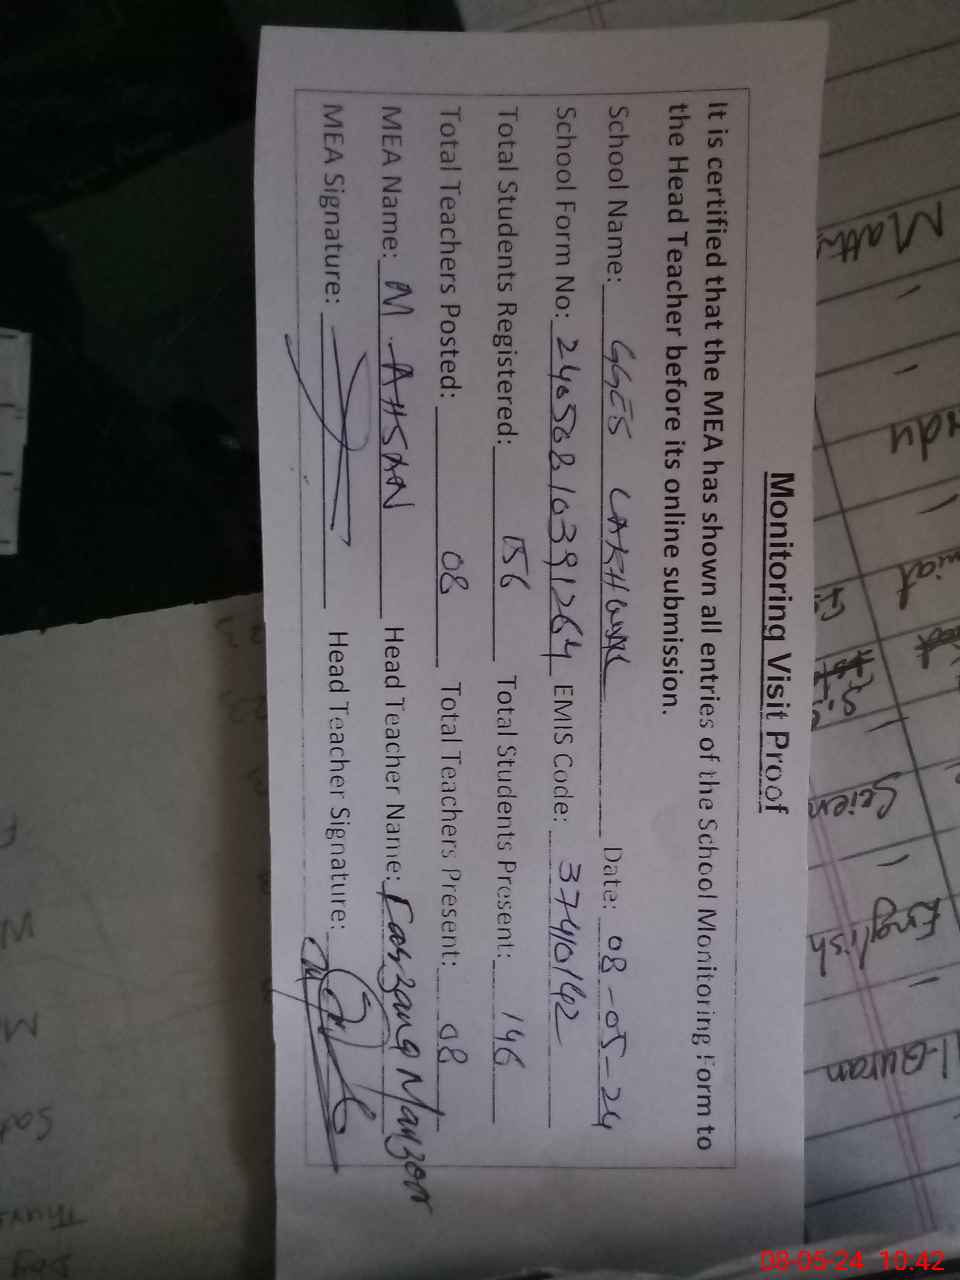 Monitoring Visit Proof
It is certified that the MEA has shown all entries of the School Monitoring Form to
the Head Teacher before its online submission.
School Name: GGES LAKHWAL Date: 08-05-24
School Form No: 24050810391264 EMIS Code: 37410142
Total Students Registered: 156 Total Students Present: 146
Total Teachers Posted: 08 Total Teachers Present: 08
MEA Name: M. AHSAN Head Teacher Name: Farzana Manzoor
MEA Signature: Head Teacher Signature:
Math
Scien
English
l-Quran
Sat
Thurs
Day
08-05-24 10:42